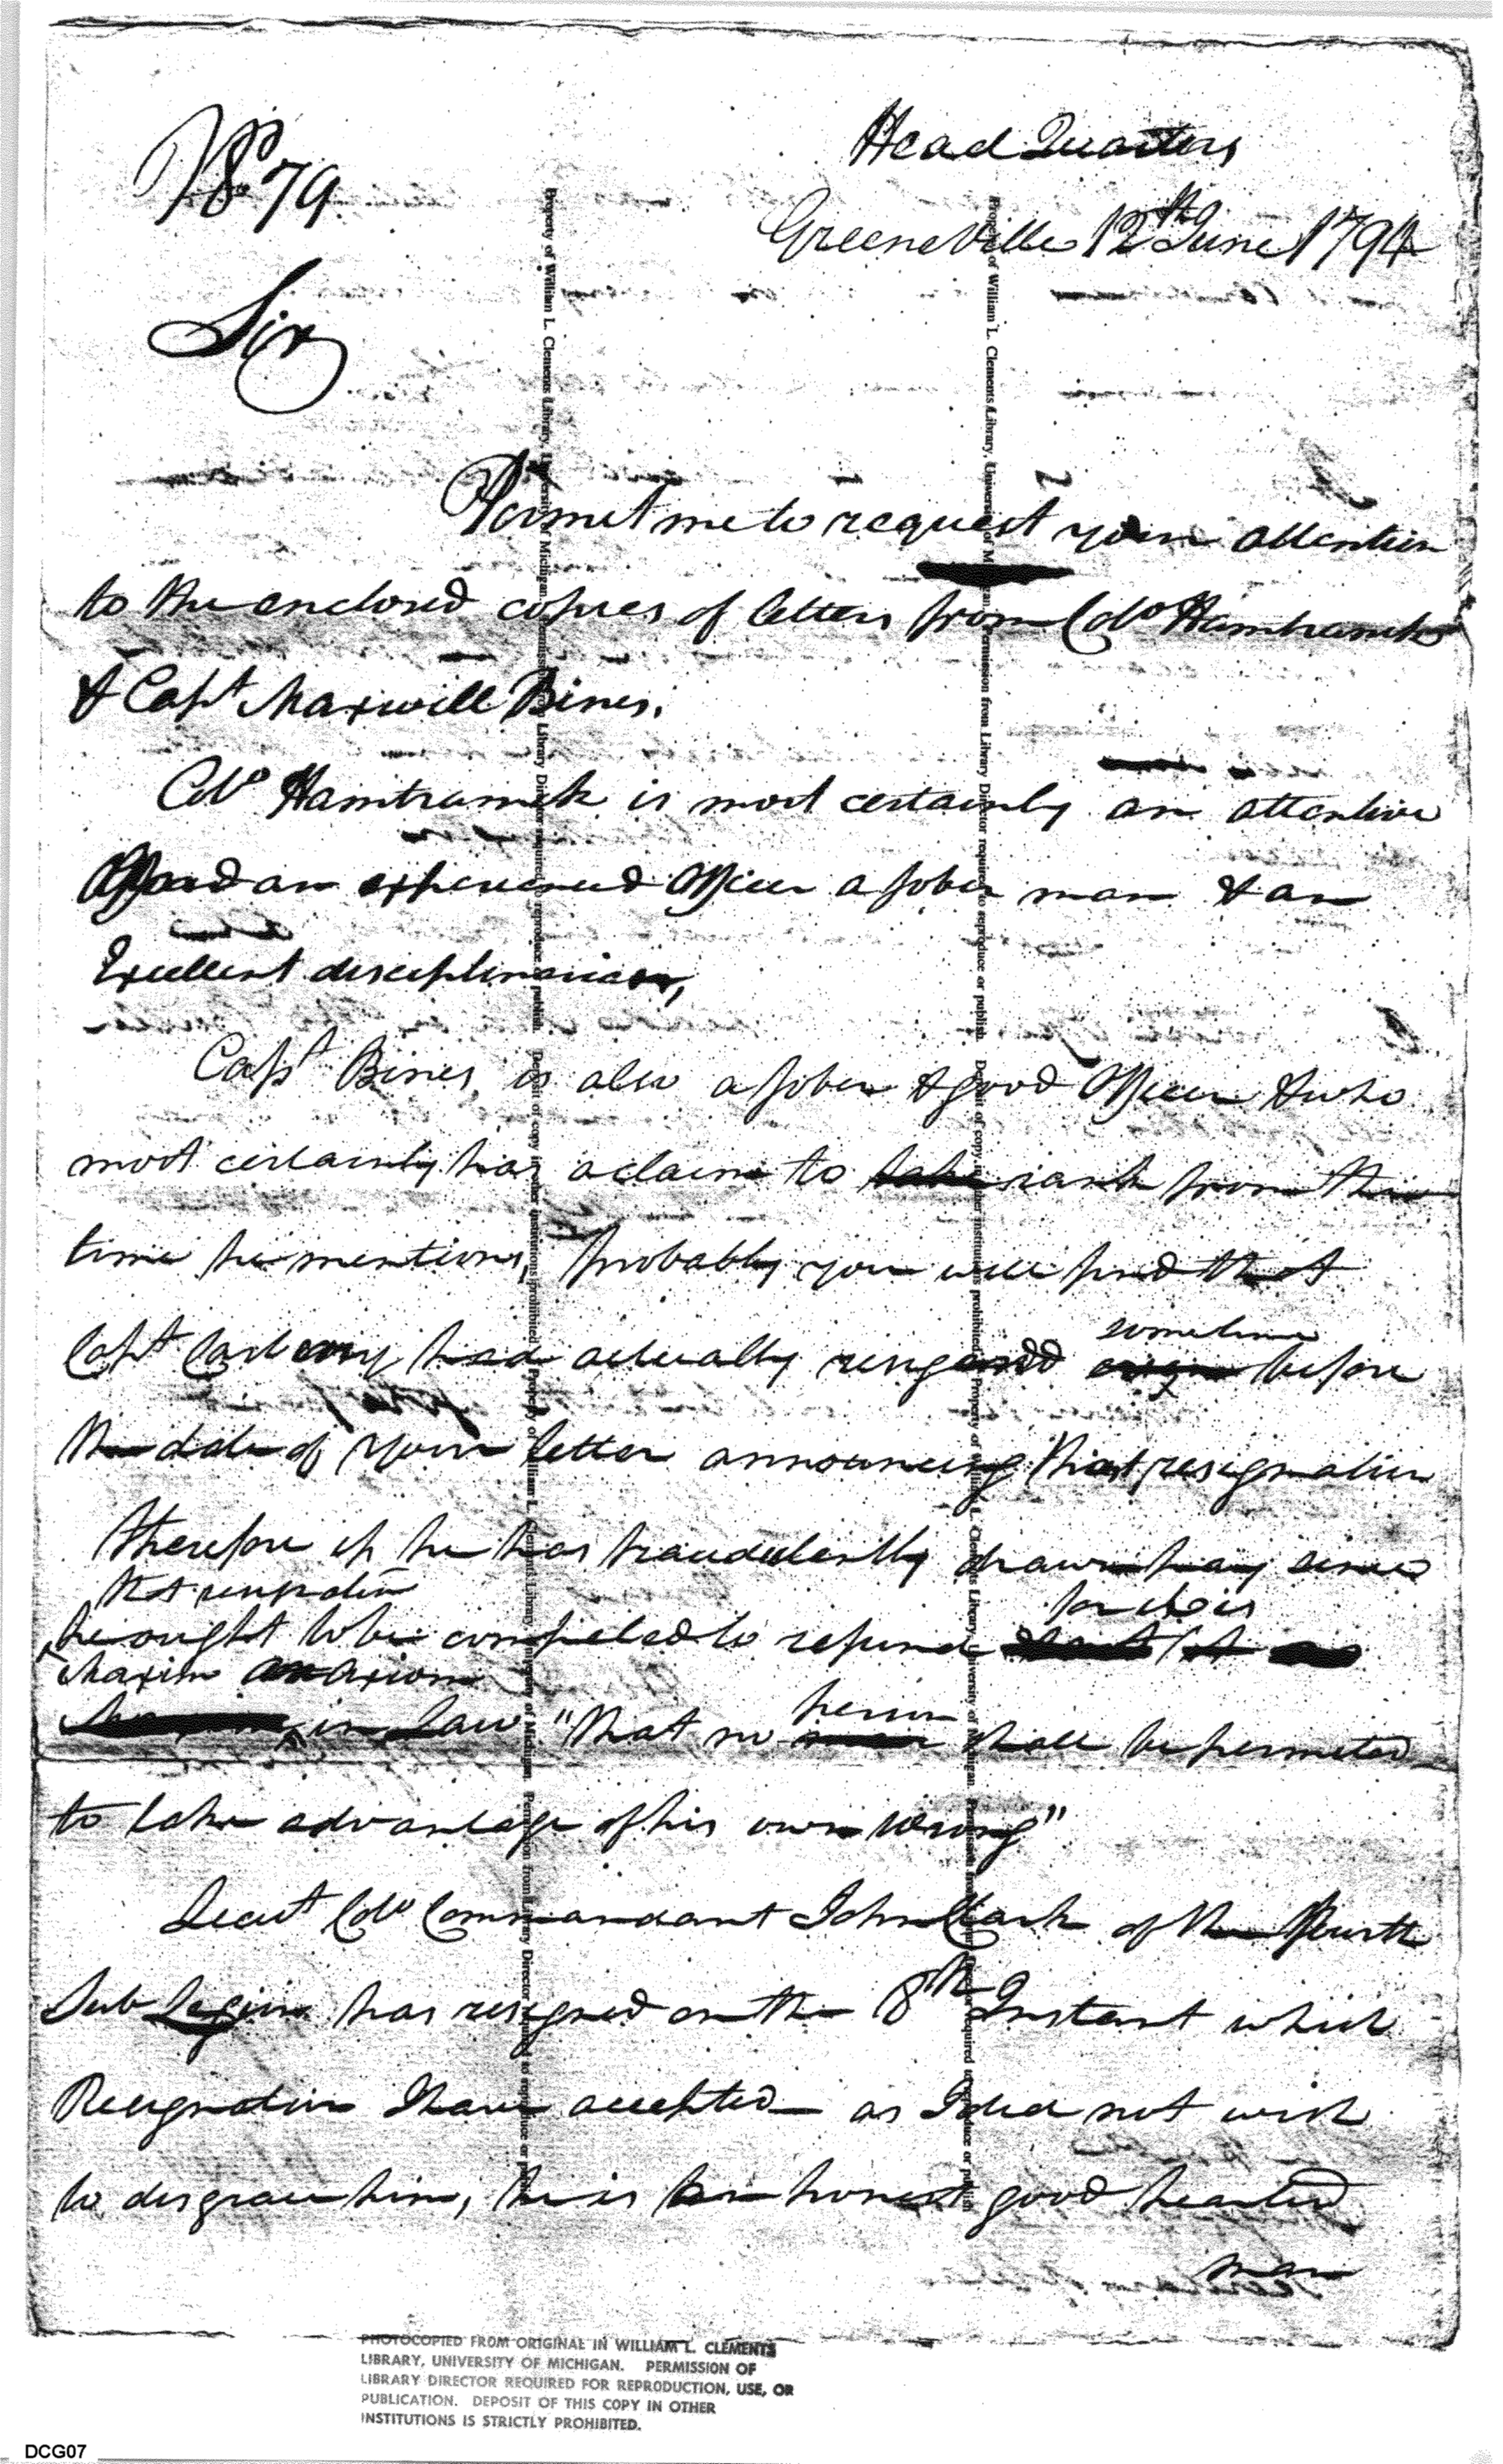 No 79
Head Quarters
Greeneville 12th June 1794
Sir
Permit me to request your attention
to the enclosed copies of letters from Colo Hamtramck
& Capt Maxwell Bines.
Colo Hamtramck is most certainly an attentive
and an experienced Officer a sober man & an
Excellent disciplinarian,
Capt Bines, is also a sober & good Officer & who
most certainly has a claim to take rank from the
time he mentions, probably you will find that
Capt Carberry had actually resigned
sometime
before
the date of your letter announcing that resignation
therefore if he has fraudulently drawn pay since
that resignation
he ought to be compeled to refund
for it is
Maxim an axiom
in Law "that no
person
man shall be permited
to take advantage of his own wrong"
Lieut Colo Commandant John Clark of the Fourth
Sub Legion has resigned on the 8th Instant which
Resignation I have accepted as I did not wish
to disgrace him, he is an honest good hearted
man
PHOTOCOPIED FROM ORIGINAL IN WILLIAM L. CLEMENTS
LIBRARY, UNIVERSITY OF MICHIGAN. PERMISSION OF
LIBRARY DIRECTOR REQUIRED FOR REPRODUCTION, USE, OR
PUBLICATION. DEPOSIT OF THIS COPY IN OTHER
INSTITUTIONS IS STRICTLY PROHIBITED.
DCG07
Property of William L. Clements Library, University of Michigan. Permission from Library Director required to reproduce or publish. Deposit of copy in other institutions prohibited.
Property of William L. Clements Library, University of Michigan. Permission from Library Director required to reproduce or publish.
Property of William L. Clements Library, University of Michigan. Permission from Library Director required to reproduce or publish. Deposit of copy in other institutions prohibited.
Property of William L. Clements Library, University of Michigan. Permission from Library Director required to reproduce or publish.